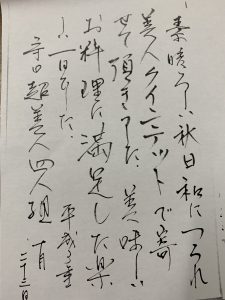 素晴らしい秋日和につられ
美人クインテットで寄
せて頂きました。美味しい
お料理に満足した楽
しい一日でした。
平成
守口超美人四人組 一同
二十三日